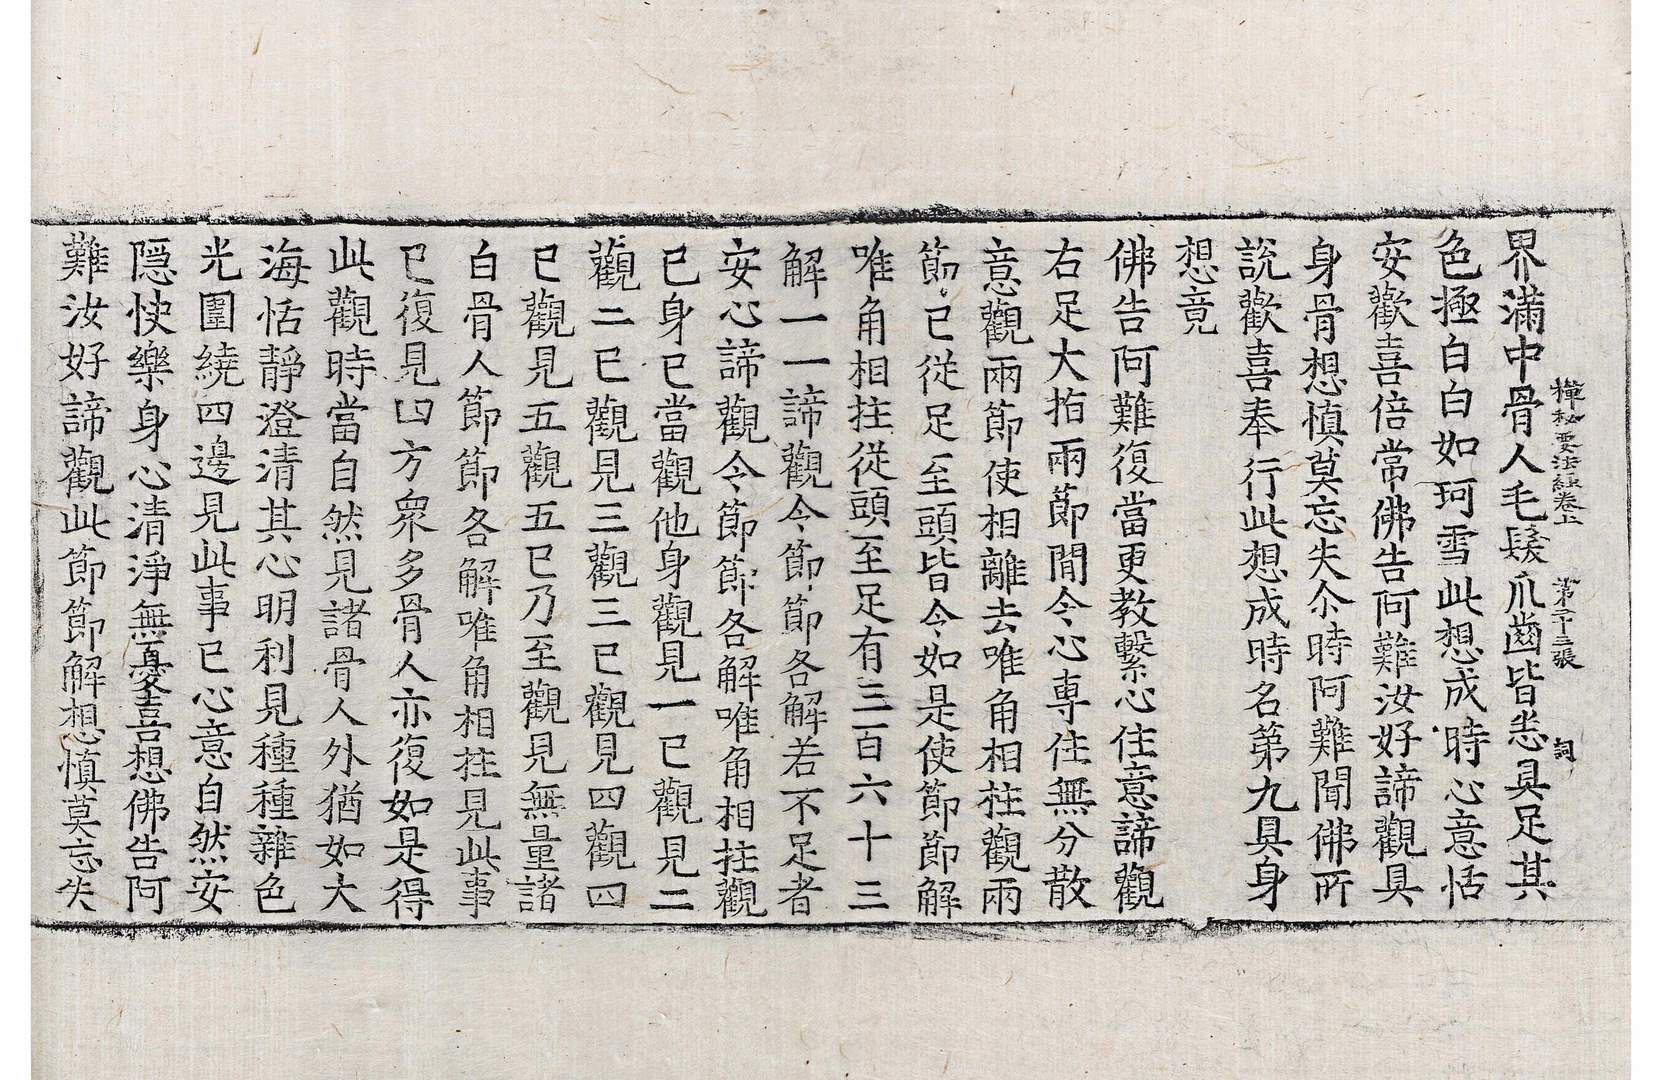 禪秘要法經卷上 第二十三張 詞
界滿中骨人毛髮爪齒皆悉具足其
色極白白如珂雪此想成時心意恬
安歡喜倍常佛告阿難汝好諦觀具
身骨想慎莫忘失尒時阿難聞佛所
說歡喜奉行此想成時名第九具身
想竟
佛告阿難復當更教繫心住意諦觀
右足大拍兩節間令心專住無分散
意觀兩節使相離去唯角相拄觀兩
節已從足至頭皆令如是使節節解
唯角相拄從頭至足有三百六十三
解一一諦觀令節節各解若不足者
安心諦觀令節節各解唯角相拄觀
已身已當觀他身觀見一已觀見二
觀二已觀見三觀三已觀見四觀四
已觀見五觀五已乃至觀見無量諸
白骨人節節各解唯角相拄見此事
已復見四方衆多骨人亦復如是得
此觀時當自然見諸骨人外猶如大
海恬靜澄清其心明利見種種雜色
光圍繞四邊見此事已心意自然安
隠快樂身心清淨無憂喜想佛告阿
難汝好諦觀此節節解想慎莫忘失